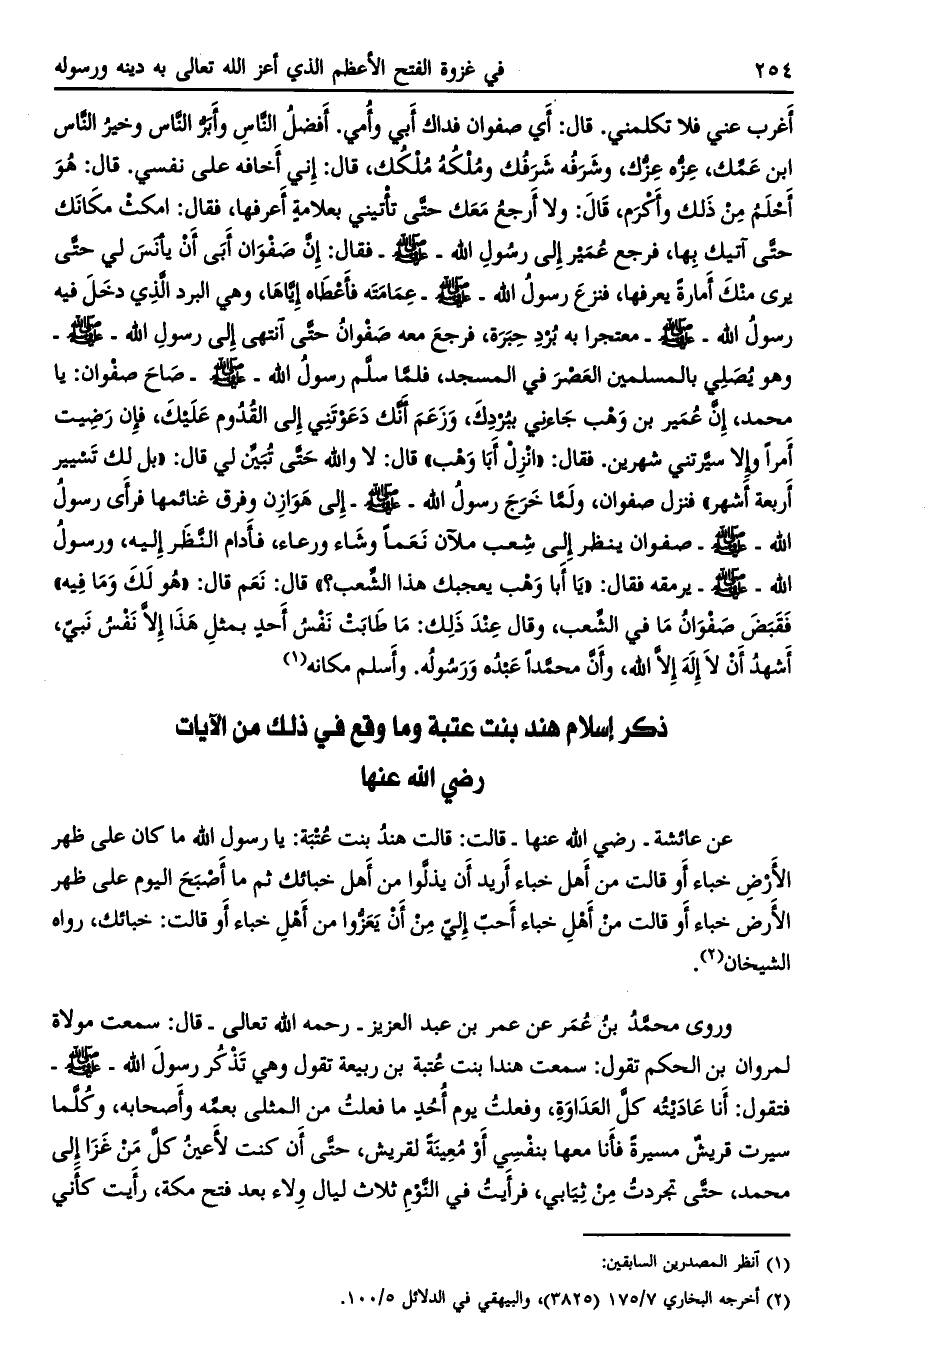 ٢٥٤ في غزوة الفتح الأعظم الذي أعز الله تعالى به دينه ورسوله
أَغرب عني فلا تكلمني. قال: أَي صفوان فداك أَبي وأُمي. أَفضلُ النَّاسِ وأَبَرُّ النَّاس وخيرُ النَّاس
ابن عَمِّك، عِزُّه عِزُّك، وشَرَفُه شَرَفُك ومُلْكُهُ مُلْكُك، قال: إِني أَخافه على نفسي. قال: هُوَ
أَحْلَمُ مِنْ ذَلك وأَكْرَم، قَالَ: ولا أَرجعُ مَعَك حتَّى تأْتيني بعلامةٍ أَعرفها، فقال: امكثْ مكَانَك
حتَّى آتيك بِها، فرجع عُمَيْر إِلى رسُولِ الله ـ ﷺ ـ فقال: إِنَّ صَفْوَان أَبَى أَنْ يأْنَسَ لي حتَّى
يرى منْكَ أَمارةً يعرفها، فنزعَ رسولُ الله ـ ﷺ ـ عِمَامَتَه فأَعْطَاه إِيَّاهَا، وهي البرد الَّذِي دخَلَ فيه
رسولُ الله ـ ﷺ ـ معتجرا به بُرْدِ حِبَرَة، فرجع معه صَفْوانُ حتَّى آنتهى إِلى رسولِ الله ـ ﷺ ـ
وهو يُصَلِي بالمسلمين العَصْرَ في المسجد، فلمَّا سلَّم رسولُ الله ـ ﷺ ـ صَاحَ صفْوان: يا
محمد، إِنَّ عُمَير بن وَهْب جَاءني ببُرْدِكَ، وَزَعَمَ أَنَّك دَعَوْتَنِي إِلى القُدُوم عَلَيْكَ، فإِن رَضِيت
أَمراً وإِلا سيَّرتني شهرين. فقال: «انْزِلْ أَبَا وَهْب» قال: لا والله حَتَّى تُبَيِّن لي قال: «بل لك تَسْيير
أَربعة أَشهر» فنزل صفوان، ولَمَّا خَرَجَ رسولُ الله ـ ﷺ ـ إِلى هَوَازِن وفرق غنائمها فرأَى رسولُ
الله ـ ﷺ ـ صفوان ينظر إِلى شِعب ملآن نَعَماً وشَاء ورعاء، فأَدام النَّظَر إِليه، ورسولُ
الله ـ ﷺ ـ يرمقه فقال: «يَا أَبا وَهْب يعجبك هذا الشِّعب؟» قال: نَعَم قال: «هُو لَكَ وَمَا فِيه»
فَقَبَضَ صَفْوَانُ مَا في الشِّعب، وقال عِنْدَ ذَلِك: مَا طَابَتْ نَفْسُ أَحدٍ بمثلِ هَذَا إِلاَّ نَفْسُ نَبيّ،
أَشهدُ أَنْ لاَ إِلَهَ إِلاَّ الله، وأَنَّ محمَّداً عَبْدُه وَرَسُولُه. وأَسلم مكانه(١)
ذكر إسلام هند بنت عتبة وما وقع في ذلك من الآيات
رضي الله عنها
عن عائشة ـ رضي الله عنها ـ قالت: قالت هندُ بنت عُتْبَة: يا رسول الله ما كان على ظهر
الأَرْضِ خباء أَو قالت من أَهل خباء أَريد أَن يذلَّوا من أَهل خبائك ثم ما أَصْبَحَ اليوم على ظهر
الأَرض خباء أَو قالت منْ أَهْلِ خباء أَحبّ إِليّ مِنْ أَنْ يَعَزُّوا من أَهْلِ خباء أَو قالت: خبائك، رواه
الشيخان(٢).
وروى محمَّدُ بنُ عُمَر عن عمر بن عبد العزيز ـ رحمه الله تعالى ـ قال: سمعت مولاة
لمروان بن الحكم تقول: سمعت هندا بنت عُتبة بن ربيعة تقول وهي تَذْكُر رسولَ الله ـ ﷺ ـ
فتقول: أَنا عَادَيْتُه كلَّ العَدَاوَةِ، وفعلتُ يوم أُحُدٍ ما فعلتُ من المثلى بعمِّه وأَصحابه، وكُلَّما
سيرت قريشٌ مسيرةً فأَنا معها بنفْسِي أَوْ مُعِينَةً لقريش، حتَّى أَن كنت لأَعينُ كلَّ مَنْ غَزَا إِلى
محمد، حتَّى تجردتُ مِنْ ثِيَابي، فرأَيتُ في النَّوْمِ ثلاث ليال وِلاء بعد فتح مكة، رأَيت كأَني
(١) آنظر المصدرين السابقين:
(٢) أخرجه البخاري ١٧٥/٧ (٣٨٢٥)، والبيهقي في الدلائل ١٠٠/٥.